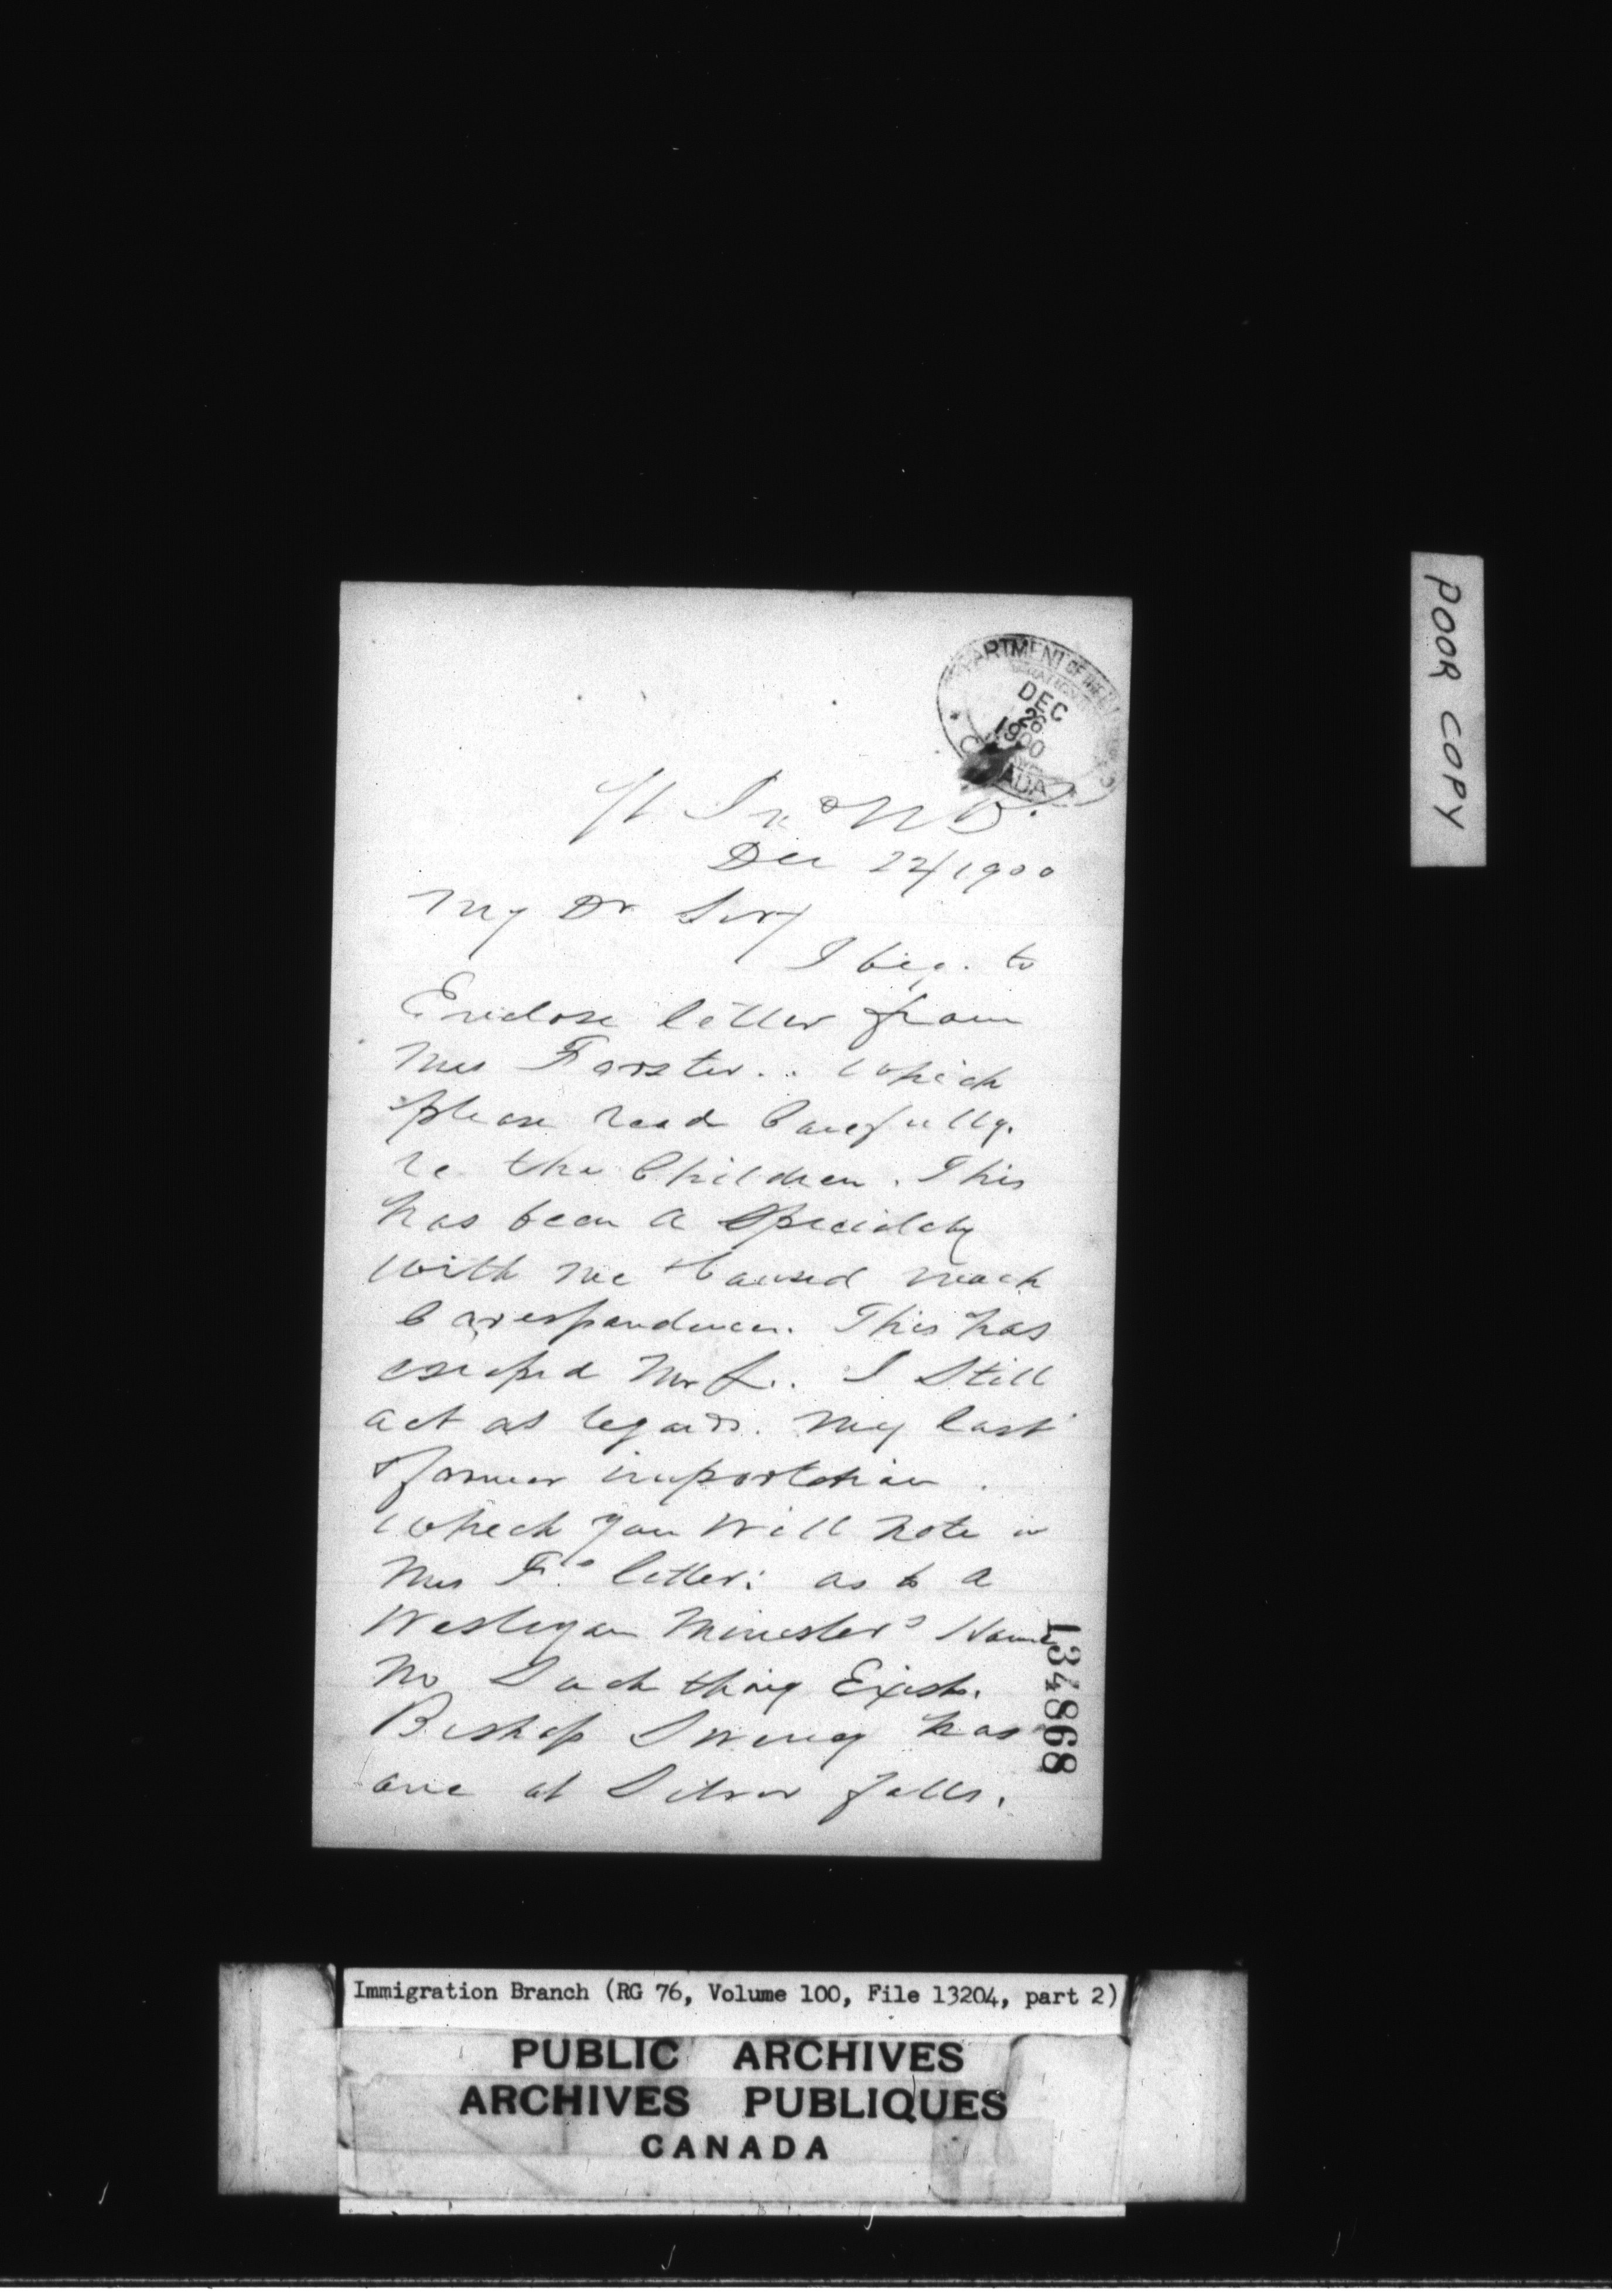 DEPARTMENT OF THE
DEC
26
1900
CANADA
St. Jn. N B.
Dec 22/1900
My Dr Sir/
I beg. to
Enclose letter from
Mrs Forster.. which
please read Carefully.
re the Children. This
has been a Speciality
with me & Caused much
Corespondence. This has
escaped Mr L. I Still
act as regards. My last
& former importation.
which you Will Note in
Mrs F.s letter: as to a
Wesleyan Minister's Home
No Such thing Exists.
Bishop Sweny has
one at Silver falls.
134868
POOR COPY
Immigration Branch (RG 76, Volume 100, File 13204, part 2)
PUBLIC ARCHIVES
ARCHIVES PUBLIQUES
CANADA